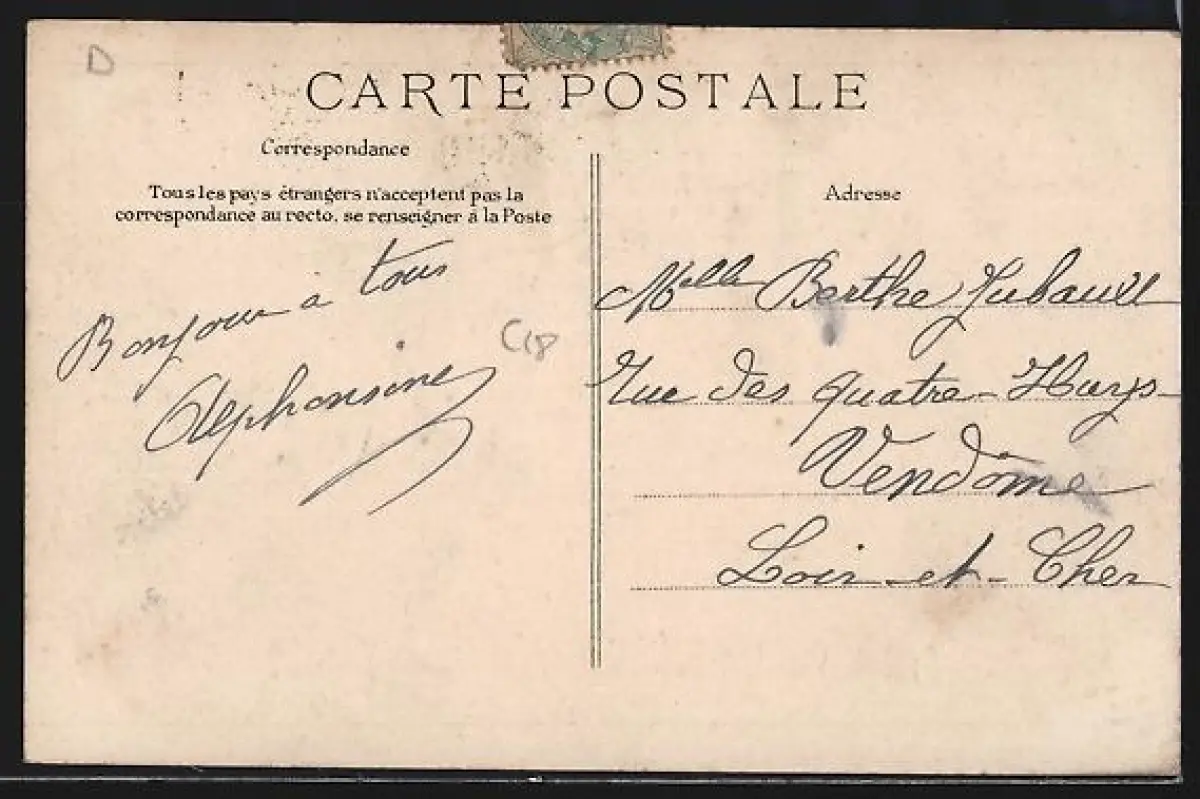 D
CARTE POSTALE
Correspondance
Tous les pays étrangers n'acceptent pas la
correspondance au recto, se renseigner à la Poste
Bonjour a tous
Alphonsine
C18
Adresse
Melle Berthe Jubault
Rue des quatre-Huys
Vendôme
Loir-et-Cher